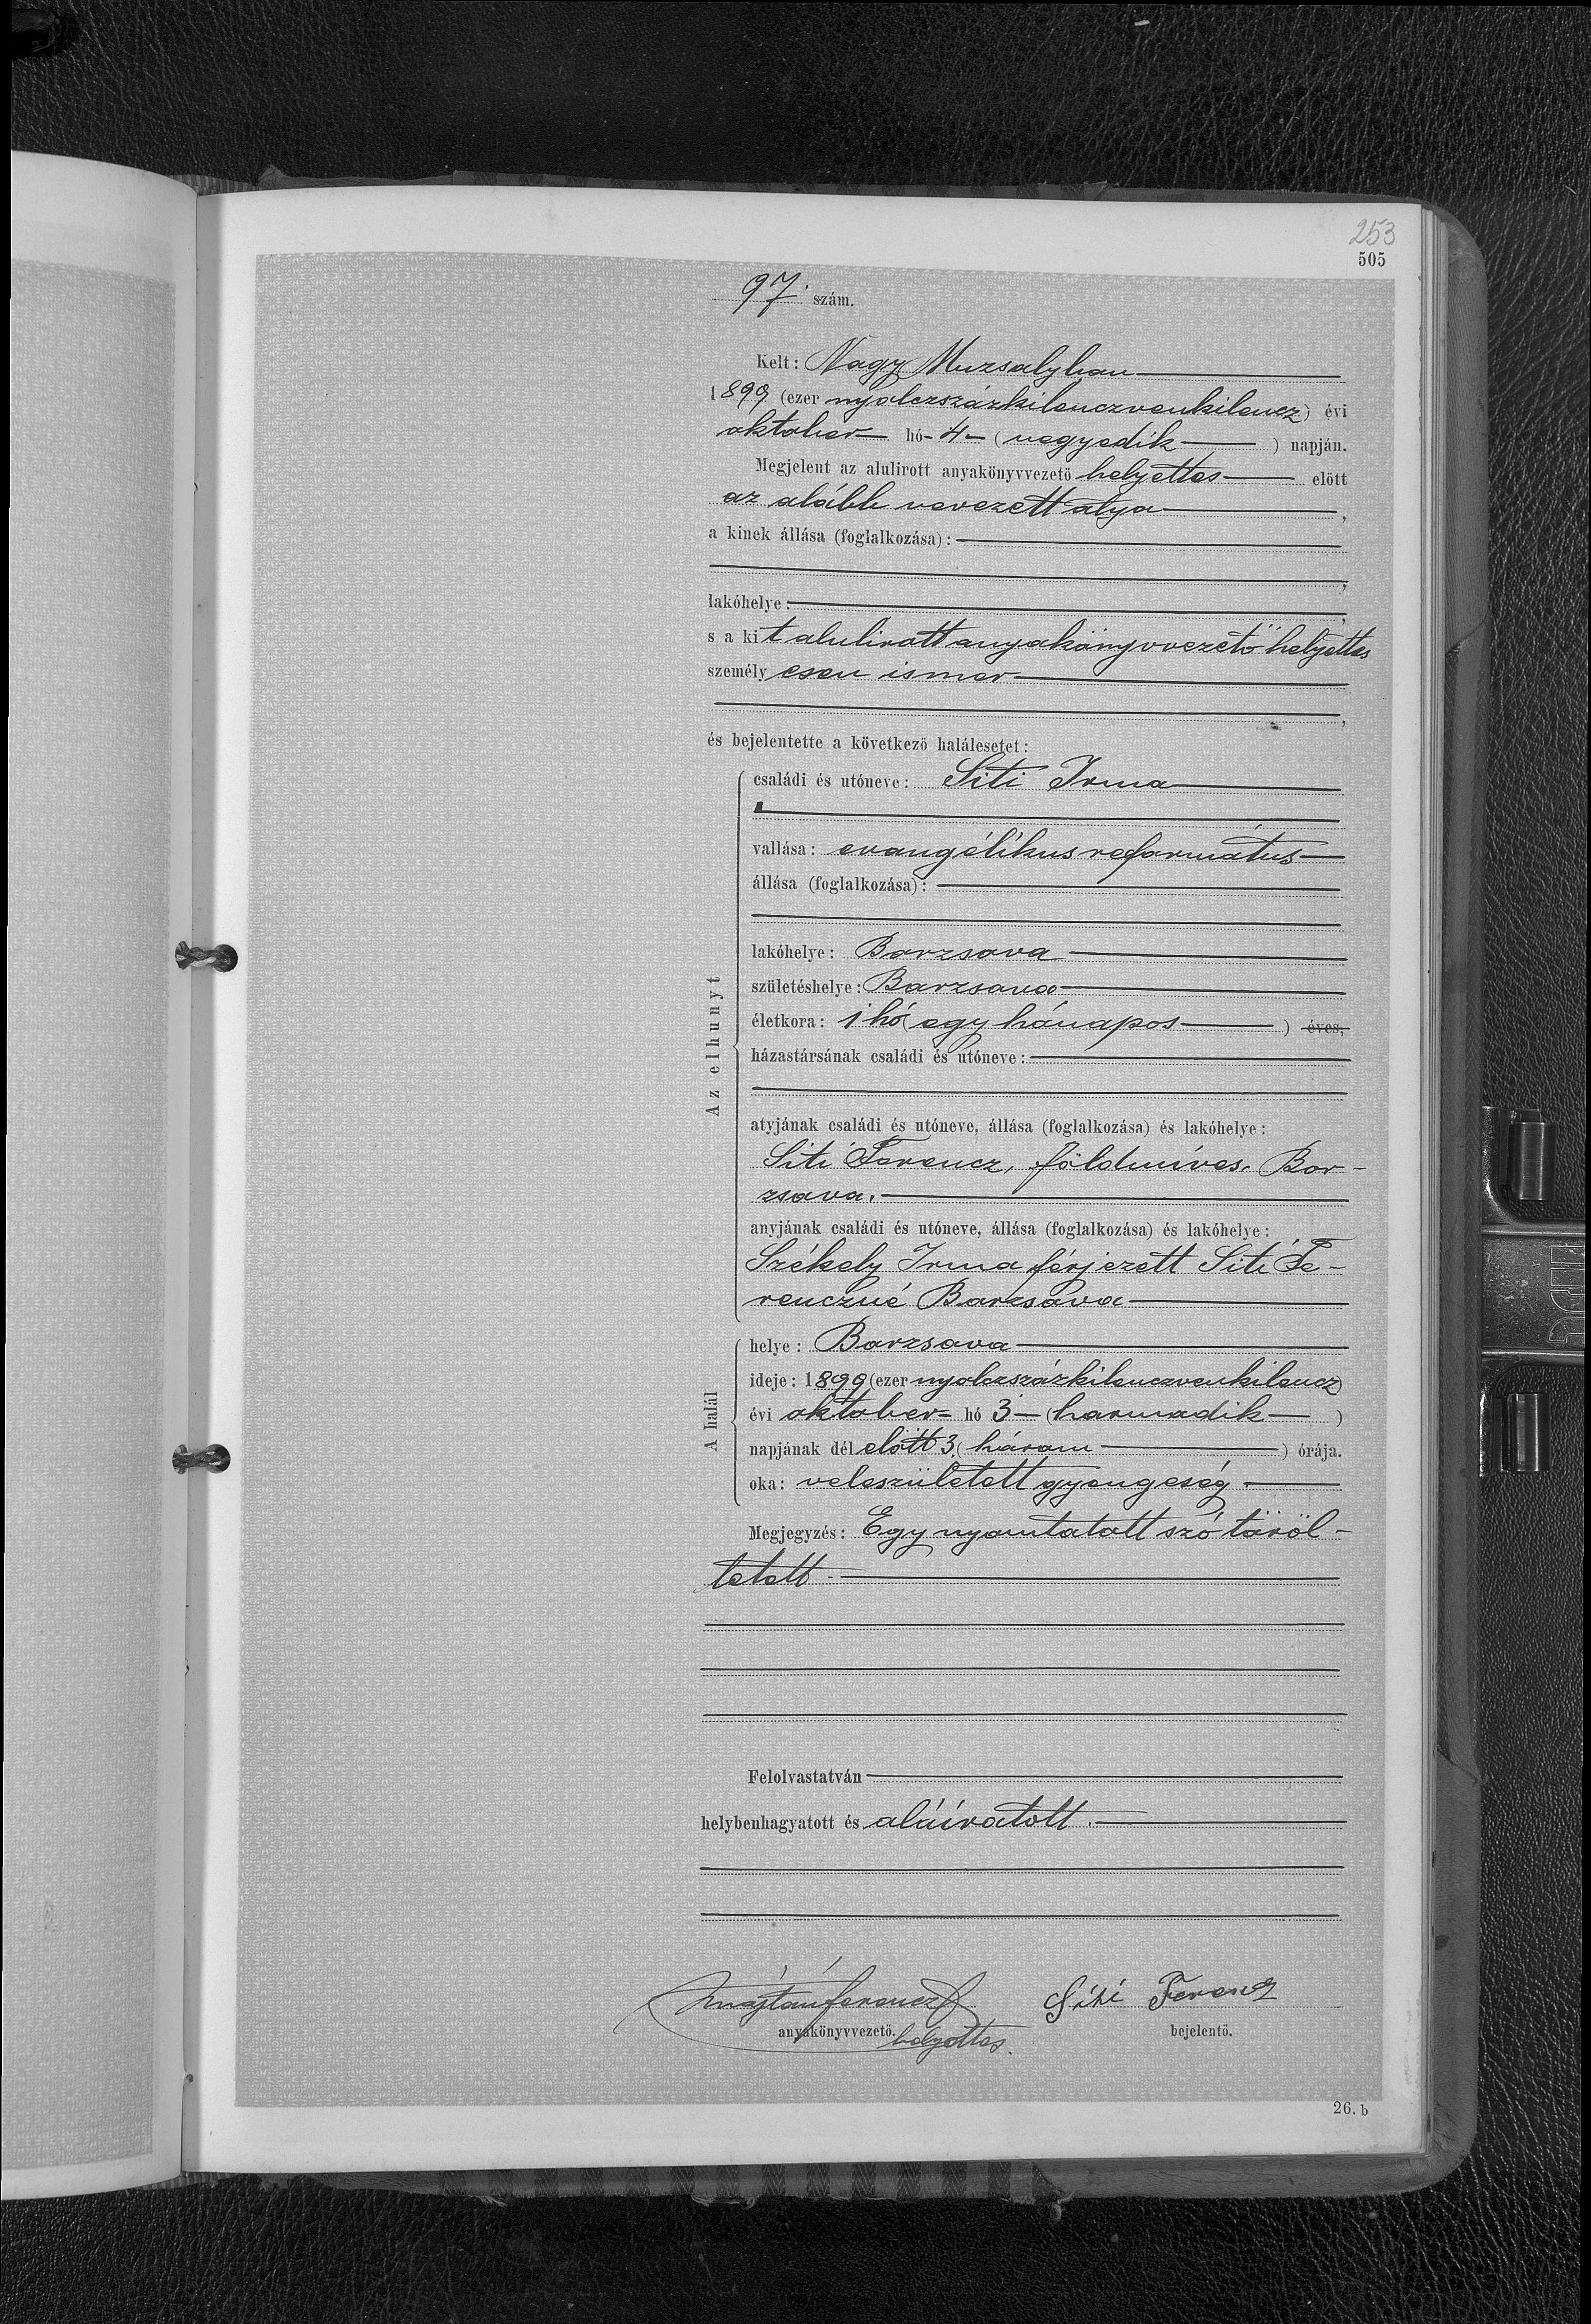 253
505
97. szám.
Kelt: Nagy Muzsalyban
1899 (ezer nyolczszázkilenczvenkilencz) évi
oktober hó 4 (negyedik) napján.
Megjelent az alulirott anyakönyvvezető helyettes előtt
az alább nevezett atya,
a kinek állása (foglalkozása):
lakóhelye:
s a kit alulirott anyakönyvvezető helyettes
személyesen ismer
és bejelentette a következő halálesetet:
Az elhunyt
családi és utóneve: Siti Irma
vallása: evangélikus református
állása (foglalkozása):
lakóhelye: Borzsova
születéshelye: Borzsova
életkora: 1 hó (egy hónapos) éves,
házastársának családi és utóneve:
atyjának családi és utóneve, állása (foglalkozása) és lakóhelye:
Siti Ferencz, földmíves, Bor-
zsova.
anyjának családi és utóneve, állása (foglalkozása) és lakóhelye:
Székely Irma férjezett Siti Fe-
renczné Borzsova
A halál
helye: Borzsova
ideje: 1899 (ezer nyolczszázkilenczvenkilencz)
évi oktober hó 3 (harmadik)
napjának dél előtt 3 (három) órája.
oka: veleszületett gyengeség.
Megjegyzés: Egy nyomtatott szó töröl-
tetett.
Felolvastatván
helybenhagyatott és aláíratott.
Ferencz Siti Ferencz
anyakönyvvezető. helyettes. bejelentő.
26. b